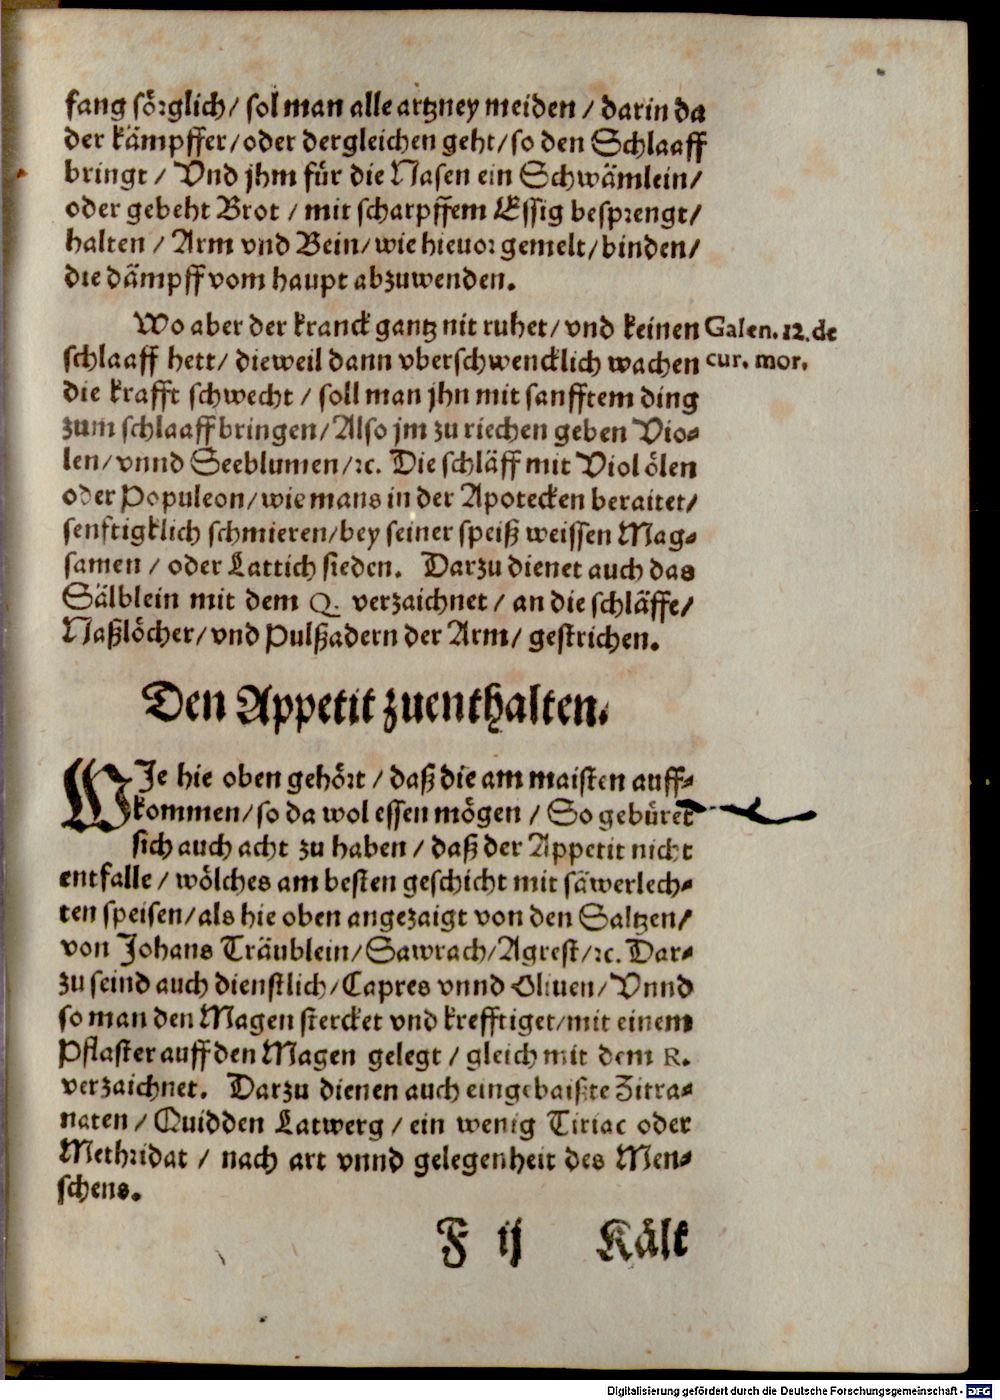 fang sörglich/ sol man alle artzney meiden / darin da
der kämpffer/oder dergleichen geht/so den Schlaaff
bringt / Vnd jhm für die Nasen ein Schwämlein/
oder gebeht Brot / mit scharpffem Essig besprengt/
halten / Arm vnd Bein/wie hieuor gemelt/binden/
die dämpff vom haupt abzuwenden.
Wo aber der kranck gantz nit ruhet/ vnd keinen
Galen. 12. de
schlaaff hett/ dieweil dann vberschwencklich wachen
cur. mor.
die krafft schwecht / soll man jhn mit sanfftem ding
zum schlaaff bringen/Also jm zu riechen geben Vio-
len/vnnd Seeblumen/ꝛc. Die schläff mit Viol ölen
oder Populeon/wie mans in der Apotecken beraitet/
senftigklich schmieren/bey seiner speiß weissen Mag-
samen / oder Lattich sieden. Darzu dienet auch das
Sälblein mit dem Q. verzaichnet / an die schläffe/
Naßlöcher/vnd Pulßadern der Arm/ gestrichen.
Den Appetit zuenthalten.
WJe hie oben gehört / daß die am maisten auff-
kommen/so da wol essen mögen / So gebüret
sich auch acht zu haben / daß der Appetit nicht
entfalle / wölches am besten geschicht mit säwerlech-
ten speisen/als hie oben angezaigt von den Saltzen/
von Johans Träublein/Sawrach/Agrest/ꝛc. Dar-
zu seind auch dienstlich/Capres vnnd Oliuen/Vnnd
so man den Magen stercket vnd krefftiget/mit einem
Pflaster auff den Magen gelegt / gleich mit dem R.
verzaichnet. Darzu dienen auch eingebaißte Zitra-
naten / Quidden Latwerg / ein wenig Tiriac oder
Methridat / nach art vnnd gelegenheit des Men-
schens.
F ij Kält
Digitalisierung gefördert durch die Deutsche Forschungsgemeinschaft - DFG